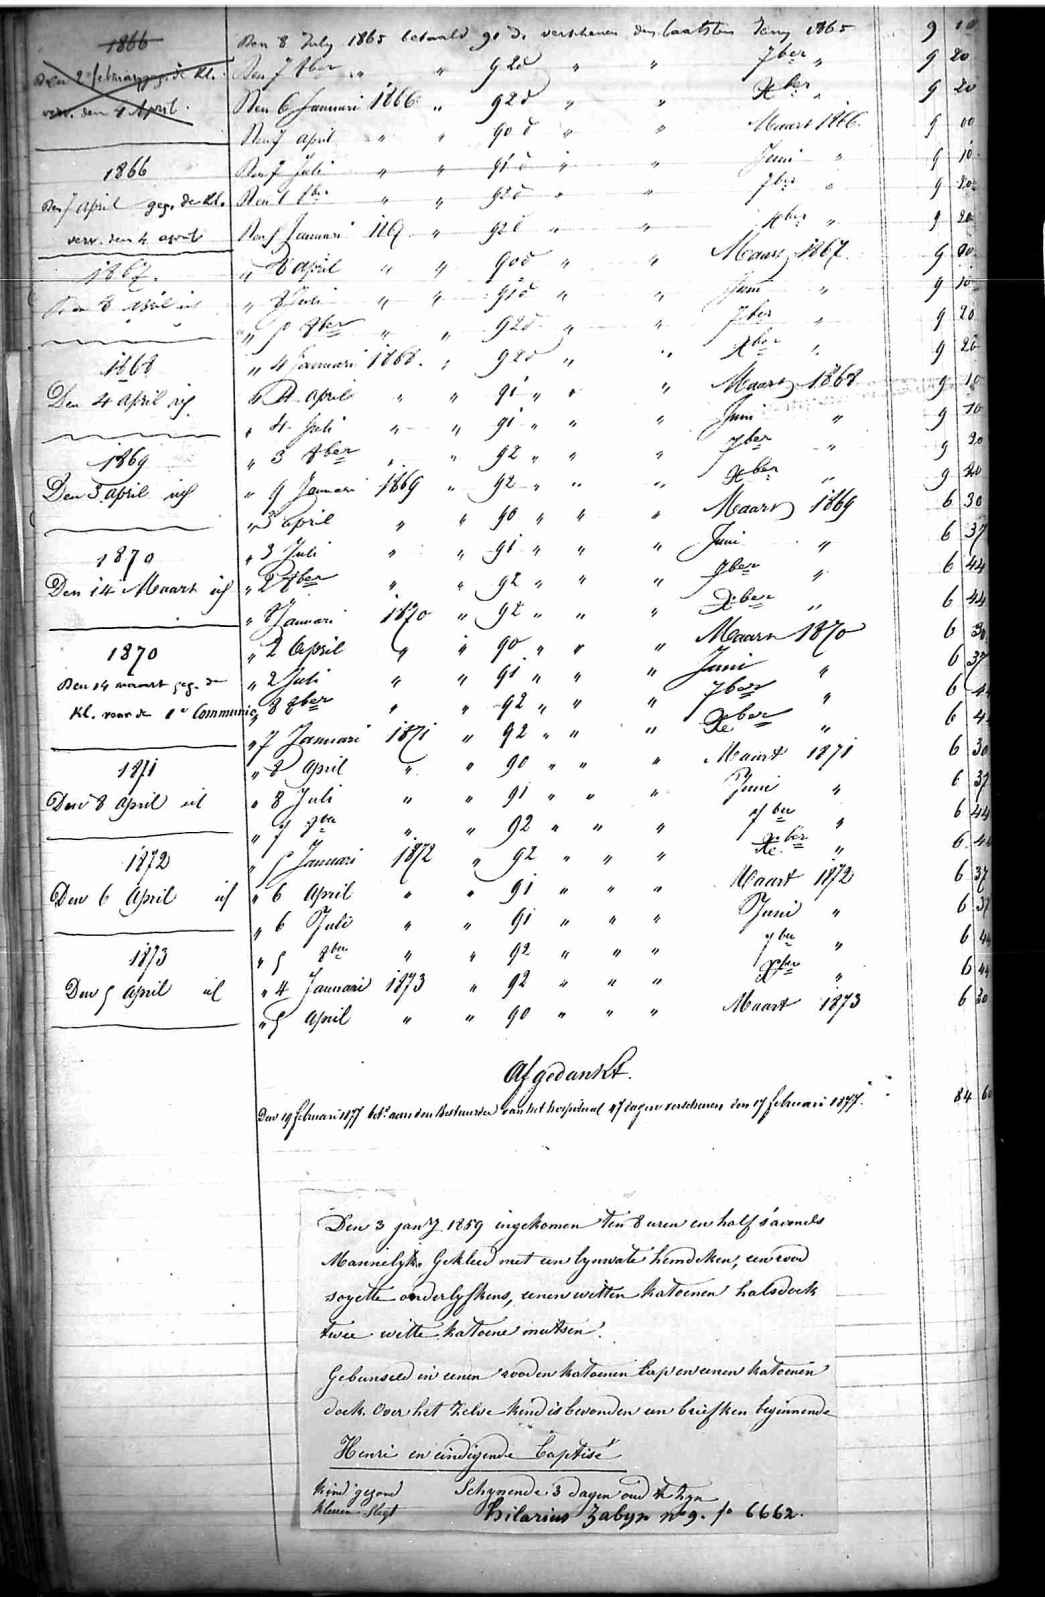 1866
Den 2 februarij geg. de Kl.
verv. den 4 April.
1866
Den 7 April geg. de Kl.
verv. den 4 april
1867.
Den 8 April id
1868
Den 4 april id
1869
Den 3 april id
1870
Den 14 Maart id
1870
Den 14 maart geg. de
Kl. voor de 1e Communie
1871
Den 8 April id
1872
Den 6 April id
1873
Den 5 April id
Den 8 July 1865 betaald 91 d. verschenen den laatsten Juny 1865 9 10
Den 7 8ber " " 92 d " " 7ber " 9 20
Den 6 Januari 1866 " 92 d " " Xber " 9 20
Den 7 april " " 90 d " " Maart 1866. 9 00
Den 7 Juli " " 91 d " " Juni " 9 10
Den 6 8ber " " 92 d " " 7ber " 9 20
Den 5 Januari 1867 " 92 d " " Xber " 9 20
" 8 april " " 90 d " " Maart 1867. 9 00
" 8 Juli " " 91 d " " Juni " 9 10
" 5 8ber " " 92 d " " 7ber " 9 20
" 4 Januari 1868. " 92 d " " Xber " 9 20
" 4 april " " 91 " " " Maart 1868 9 10
" 4 Juli " " 91 " " " Juni " 9 10
" 3 8ber " " 92 " " " 7ber " 9 20
" 9 Januari 1869 " 92 " " " Xber " 9 20
" 3 april " " 90 " " " Maart 1869 6 30
" 3 Juli " " 91 " " " Juni " 6 37
" 2 8ber " " 92 " " " 7ber " 6 44
" 8 Januari 1870 " 92 " " " Xber " 6 44
" 2 April " " 90 " " " Maart 1870 6 30
" 2 Juli " " 91 " " " Juni " 6 37
" 8 8ber " " 92 " " " 7ber " 6 44
" 7 Januari 1871 " 92 " " " Xber " 6 44
" 8 April " " 90 " " " Maart 1871 6 30
" 8 Juli " " 91 " " " Juni " 6 37
" 7 8ber " " 92 " " " 7ber " 6 44
" 5 Januari 1872 " 92 " " " Xber " 6 44
" 6 April " " 91 " " " Maart 1872 6 37
" 6 Juli " " 91 " " " Juni " 6 37
" 5 8ber " " 92 " " " 7ber " 6 44
" 4 Januari 1873 " 92 " " " Xber " 6 44
" 5 April " " 90 " " " Maart 1873 6 30
Afgedankt.
Den 19 februari 1877 bet. aan den Bestuurder van het hospitaal 47 dagen verschenen den 17 februari 1877. 84 60
Den 3 janry 1859 ingekomen ten 8 uren en half s'avonds
Mannelyk. Gekleed met een lynwate hemdeken, een rood
soyette onderlyfkens, eenen witten katoenen halsdoek
twee witte katoene mutsen.
Gebunseld in eenen rooden katoenen lap en eenen katoenen
doek. Over het zelve kind is bevonden een briefken beginnende
Henri en eindigende baptisé
kind gezond Schynende 3 dagen oud te zyn
kleeren slegt Hilarius Zabyn no 9. fo 6662.